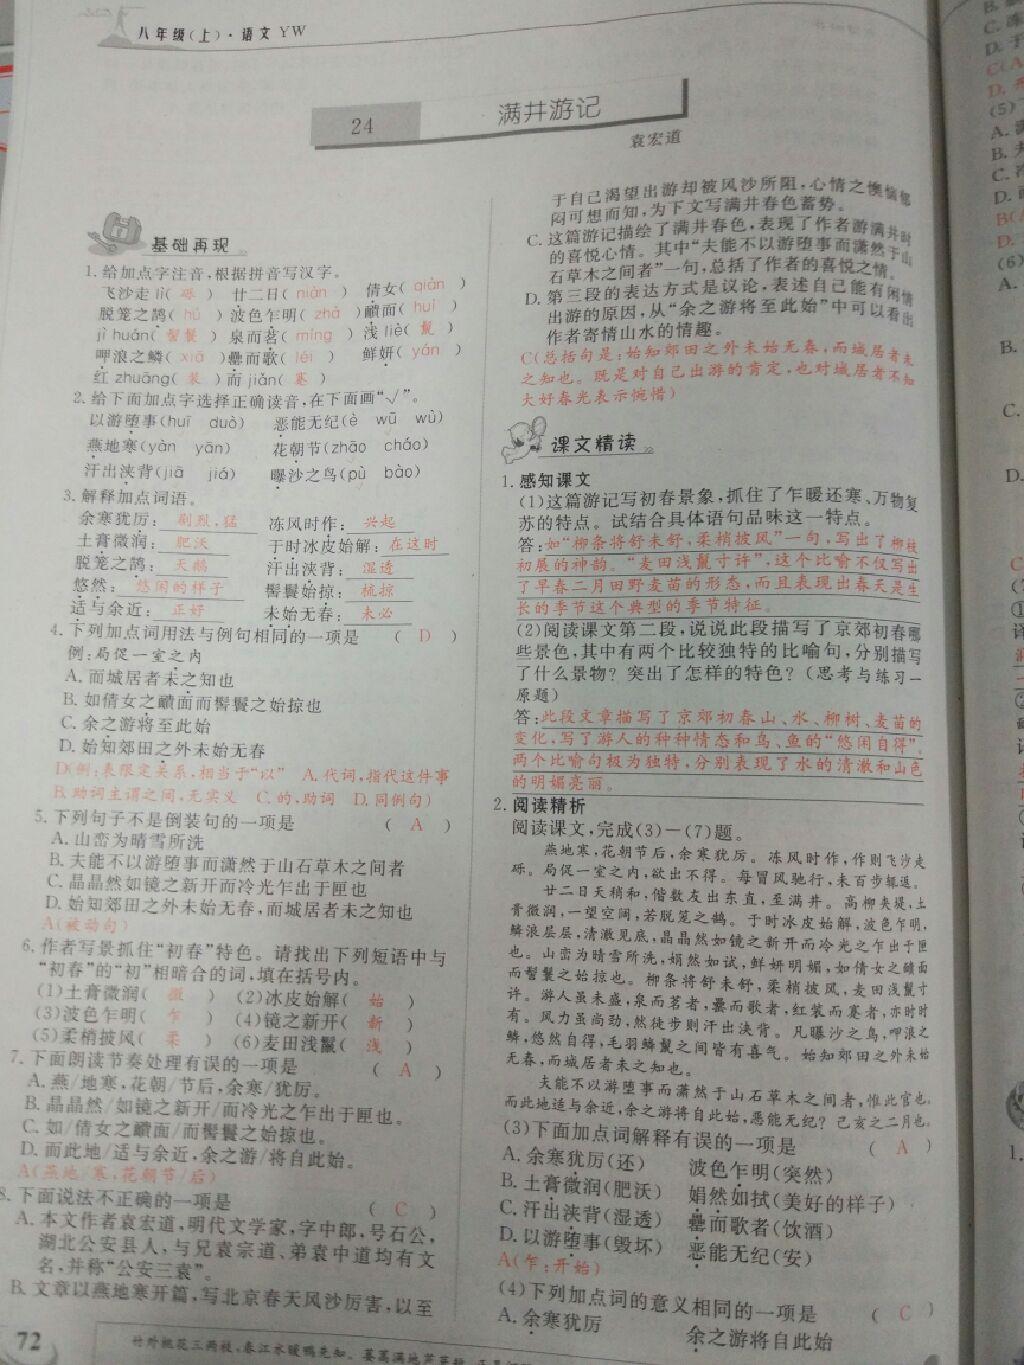 八年级(上)·语文 YW
24
满井游记
袁宏道
基础再现
1.给加点字注音,根据拼音写汉字。
飞沙走 lì( 砾 ) 廿二日( niàn ) 倩女( qiàn )
脱笼之鹄( hú ) 波色乍明( zhà ) 靧面( huì )
jì huán( 髻鬟 ) 泉而茗( míng ) 浅 liè( 鬣 )
呷浪之鳞( xiā ) 罍而歌( léi ) 鲜妍( yán )
红 zhuāng( 装 )而 jiǎn( 蹇 )
2.给下面加点字选择正确读音,在下面画“√”。
以游堕事(huī duò) 恶能无纪(è wū wù)
燕地寒(yàn yān) 花朝节(zhāo cháo)
汗出浃背(jiā jiá) 曝沙之鸟(pù bào)
3.解释加点词语。
余寒犹厉: 剧烈,猛 冻风时作: 兴起
土膏微润: 肥沃 于时冰皮始解: 在这时
脱笼之鹄: 天鹅 汗出浃背: 湿透
悠然: 悠闲的样子 髻鬟始掠: 梳掠
适与余近: 正好 未始无春: 未必
4.下列加点词用法与例句相同的一项是 ( D )
例:局促一室之内
A.而城居者未之知也
B.如倩女之靧面而髻鬟之始掠也
C.余之游将至此始
D.始知郊田之外未始无春
D(例:表限定关系,相当于“以” A.代词,指代这件事
B.助词主谓之间,无实义 C.的,助词 D.同例句)
5.下列句子不是倒装句的一项是 ( A )
A.山峦为晴雪所洗
B.夫能不以游堕事而潇然于山石草木之间者
C.晶晶然如镜之新开而冷光乍出于匣也
D.始知郊田之外未始无春,而城居者未之知也
A(被动句)
6.作者写景抓住“初春”特色。请找出下列短语中与
“初春”的“初”相暗合的词,填在括号内。
(1)土膏微润( 微 ) (2)冰皮始解( 始 )
(3)波色乍明( 乍 ) (4)镜之新开( 新 )
(5)柔梢披风( 柔 ) (6)麦田浅鬣( 浅 )
7.下面朗读节奏处理有误的一项是 ( A )
A.燕/地寒,花朝/节后,余寒/犹厉。
B.晶晶然/如镜之新开/而冷光之乍出于匣也。
C.如/倩女之靧面/而髻鬟之始掠也。
D.而此地/适与余近,余之游/将自此始。
A(燕地/寒,花朝节/后)
8.下面说法不正确的一项是 ( C )
A.本文作者袁宏道,明代文学家,字中郎,号石公,
湖北公安县人,与兄袁宗道、弟袁中道均有文
名,并称“公安三袁”。
B.文章以燕地寒开篇,写北京春天风沙厉害,以至
72
于自己渴望出游却被风沙所阻,心情之懊恼郁
闷可想而知,为下文写满井春色蓄势。
C.这篇游记描绘了满井春色,表现了作者游满井时
的喜悦心情。其中“夫能不以游堕事而潇然于山
石草木之间者”一句,总括了作者的喜悦之情。
D.第三段的表达方式是议论,表述自己能有闲情
出游的原因,从“余之游将至此始”中可以看出
作者寄情山水的情趣。
C(总括句是:始知郊田之外未始无春,而城居者未
之知也。既是对自己出游的肯定,也对城居者不知
大好春光表示惋惜)
课文精读
1.感知课文
(1)这篇游记写初春景象,抓住了乍暖还寒、万物复
苏的特点。试结合具体语句品味这一特点。
答:如“柳条将舒未舒,柔梢披风”一句,写出了柳枝
初展的神韵。“麦田浅鬣寸许”,这个比喻不仅写出
了早春二月田野麦苗的形态,而且表现出春天是生
长的季节这个典型的季节特征。
(2)阅读课文第二段,说说此段描写了京郊初春哪
些景色,其中有两个比较独特的比喻句,分别描写
了什么景物?突出了怎样的特色?(思考与练习一
原题)
答:此段文章描写了京郊初春山、水、柳树、麦苗的
变化,写了游人的种种情态和鸟、鱼的“悠闲自得”。
两个比喻句极为独特,分别表现了水的清澈和山色
的明媚亮丽。
2.阅读精析
阅读课文,完成(3)-(7)题。
燕地寒,花朝节后,余寒犹厉。冻风时作,作则飞沙走
砾。局促一室之内,欲出不得。每冒风驰行,未百步辄返。
廿二日天稍和,偕数友出东直,至满井。高柳夹堤,土
膏微润,一望空阔,若脱笼之鹄。于时冰皮始解,波色乍明,
鳞浪层层,清澈见底,晶晶然如镜之新开而冷光之乍出于匣
也。山峦为晴雪所洗,娟然如拭,鲜妍明媚,如倩女之靧面
而髻鬟之始掠也。柳条将舒未舒,柔梢披风,麦田浅鬣寸
许。游人虽未盛,泉而茗者,罍而歌者,红装而蹇者,亦时时
有。风力虽尚劲,然徒步则汗出浃背。凡曝沙之鸟,呷浪之
鳞,悠然自得,毛羽鳞鬣之间皆有喜气。始知郊田之外未始
无春,而城居者未之知也。
夫能不以游堕事而潇然于山石草木之间者,惟此官也。
而此地适与余近,余之游将自此始,恶能无纪?己亥之二月也。
(3)下面加点词解释有误的一项是 ( A )
A.余寒犹厉(还) 波色乍明(突然)
B.土膏微润(肥沃) 娟然如拭(美好的样子)
C.汗出浃背(湿透) 罍而歌者(饮酒)
D.以游堕事(毁坏) 恶能无纪(安)
A(乍:开始)
(4)下列加点词的意义相同的一项是 ( C )
A.余寒犹厉 余之游将自此始
竹外桃花三两枝,春江水暖鸭先知。